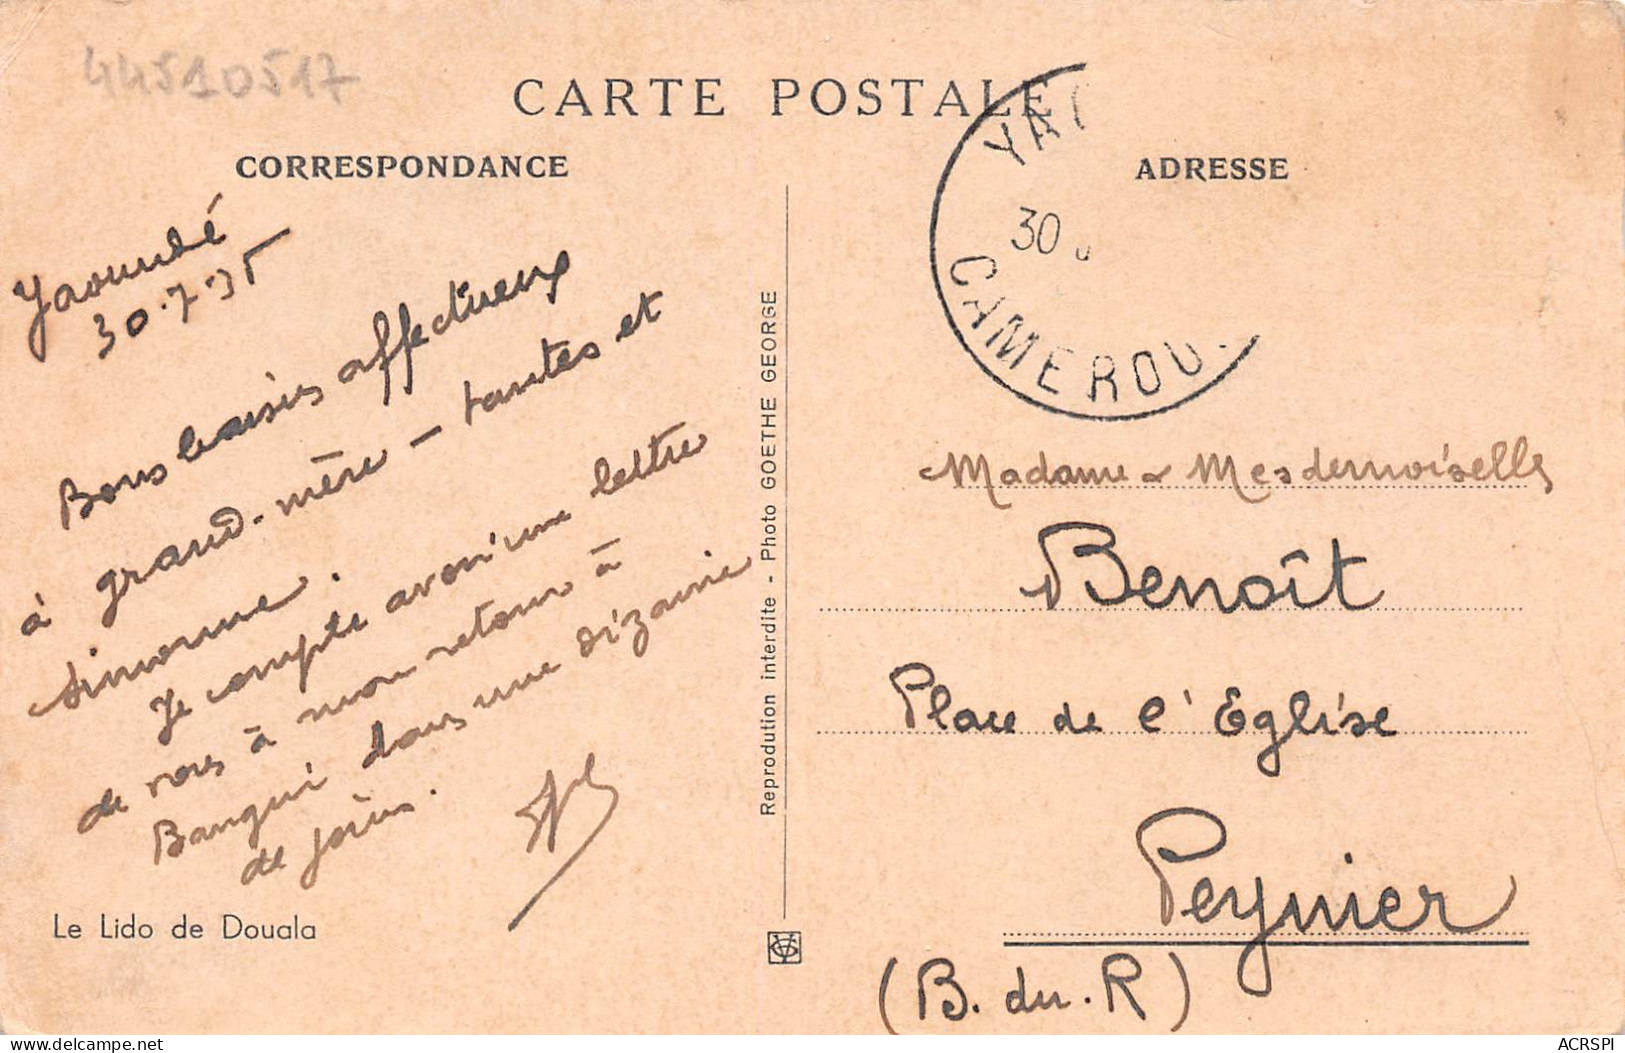 44510517
CARTE POSTALE
CORRESPONDANCE
ADRESSE
Yaoundé
30.7.35
Bons baisers affectueux
à grand-mère - tantes et
Simonne.
Je compte avoir une lettre
de vous à mon retour à
Bangui dans une dizaine
de jours.
Le Lido de Douala
Reprodution interdite - Photo GOETHE GEORGE
YA
30
CAMEROU
Madame & Mesdemoiselles
Benoît
Place de l'Eglise
Peynier
(B. du. R)
delcampe.net
ACRSPI